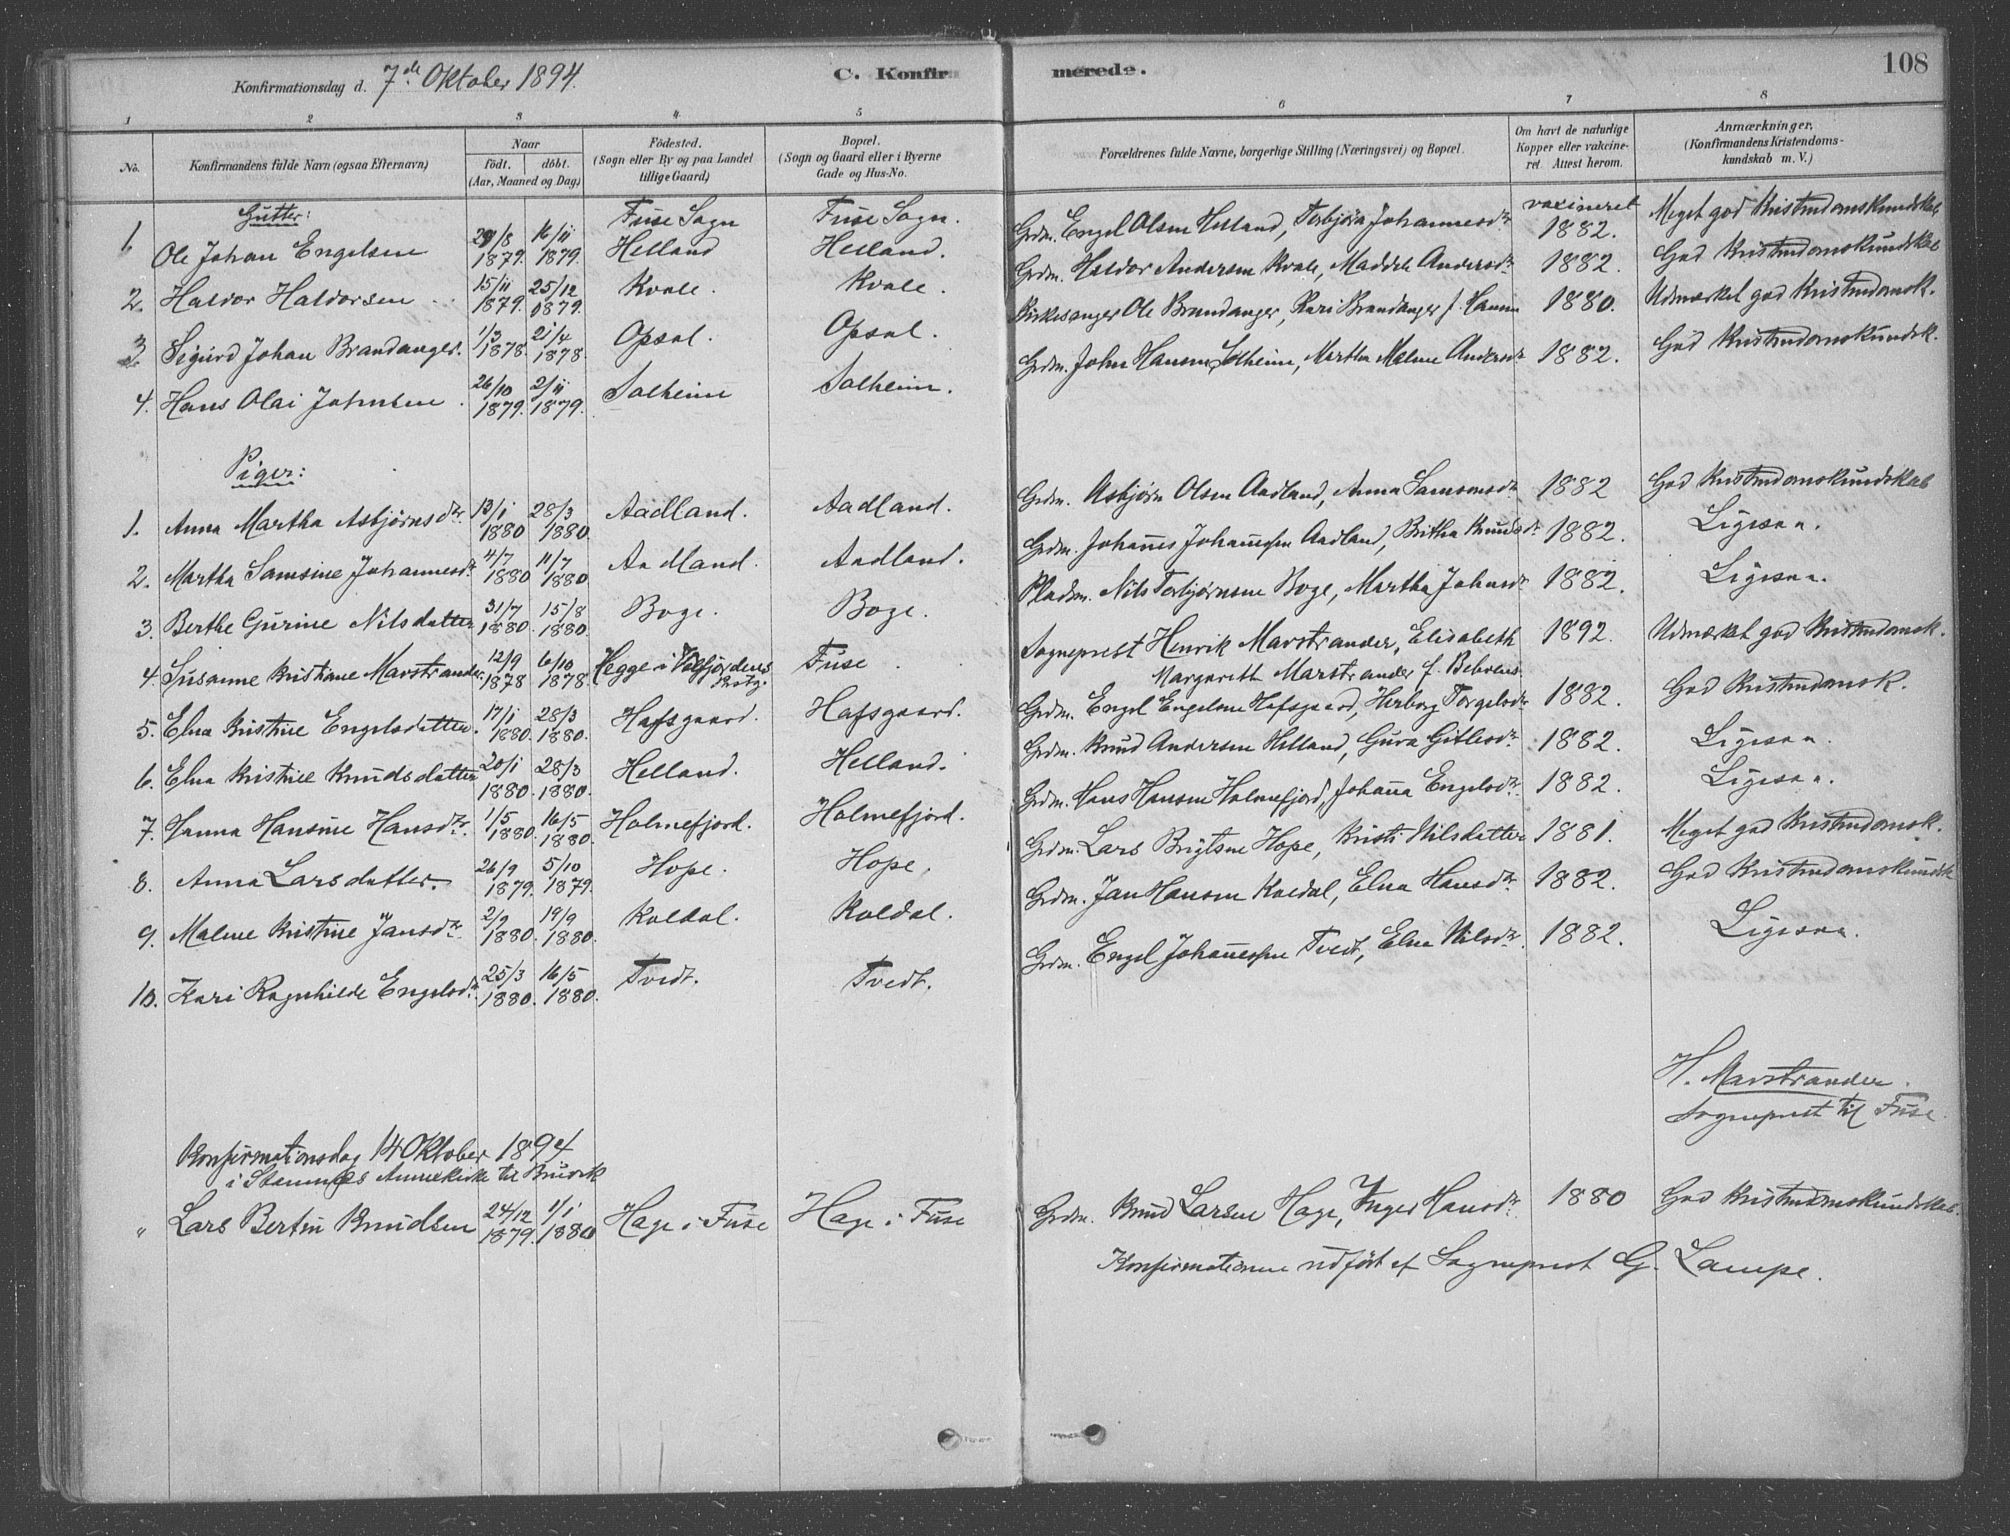 108
Konfirmationsdag d. 7de Oktober 1894.
C. Konfirmerede.
1 2 3 4. 5 6 7 8
No.
Konfirmandens fulde Navn (ogsaa Efternavn)
Naar
födt. döbt.
(Aar, Maaned og Dag)
Födested.
(Sogn eller By og paa Landet
tillige Gaard)
Bopæl.
(Sogn og Gaard eller i Byerne
Gade og Hus-No.
Forældrenes fulde Navne, borgerlige Stilling (Næringsvei) og Bopæl.
Om havt de naturlige
Kopper eller vakcine-
ret. Attest herom.
Anmærkninger.
(Konfirmandens Kristendoms-
kundskab m. V.)
Gutter:
Fuse Sogn Fuse Sogn.
vaxineret
1. Ole Johan Engelsen 29/8 1879. 16/11 1879. Helland Helland. Grdm. Engel Olsen Helland, Torbjøra Johannesdr 1882. Meget god Kristendomskundskab
2. Haldor Haldorsen 15/11 1879. 25/12 1879. Kvale. Kvale. Grdm. Haldor Andersen Kvale, Maddele Andersdr 1882. God Kristendomskundskab
3. Sigurd Johan Brandanger. 1/3 1878. 21/4 1878. Opsal. Opsal. Kirkesanger Ole Brandanger, Kari Brandanger f. 1880. Udmærket god Kristendomsk.
4. Hans Olai Johnsen 26/10 1879. 2/11 1879. Solheim Solheim. Grdm. John Hansen Solheim, Martha Malene Andersdr 1882. God Kristendomskundsk.
Piger:
1. Anna Martha Asbjørnsdr. 13/1 1880 28/3 1880. Aadland. Aadland. Grdm. Asbjørn Olsen Aadland, Anna Samsonsdr 1882 God Kristendomskundskab
2. Martha Samsine Johannesdr 4/7 1880 11/7 1880. Aadland. Aadland. Grdm. Johannes Johannessen Aadland, Britha Knudsdr 1882. Ligesaa.
3. Berthe Gurine Nilsdatter 31/7 1880. 15/8 1880. Boge. Boge. Pladsm. Nils Torbjørnsen Boge, Martha Johnsdr 1882. Ligesaa.
4. Susanne Kristiane Marstrander. 12/9 1878 6/10 1878. Hegge i Fuse. Sogneprest Henrik Marstrander, Elisabeth 1892. Udmærket god Kristendomsk.
Margareth Marstrander f. Behrens.
5. Elna Kristine Engelsdatter. 17/1 1880. 28/3 1880. Hafsgaard. Hafsgaard. Grdm. Engel Engelsen Hafsgaard, Herborg Torgelsdr 1882. God Kristendomsk.
6. Elna Kristine Knudsdatter 20/1 1880. 28/3 1880. Helland. Helland. Grdm. Knud Andersen Helland, Gura Gitlesdr. 1882. Ligesaa.
7. Hanna Hansine Hansdr. 1/5 1880. 16/5 1880. Holmefjord. Holmefjord. Grdm. Hans Hansen Holmefjord, Johanna Engelsdr. 1882. Ligesaa.
8. Anna Larsdatter. 26/9 1879. 5/10 1879. Hope. Hope, Grdm. Lars Brigtsen Hope, Kristi Nilsdatter 1881. Meget god Kristendomsk.
9. Malene Kristine Jansdr. 2/9 1880. 19/9 1880. Koldal. Koldal. Grdm. Jan Hansen Koldal, Elna Hansdr. 1882. God Kristendomskundsk
10. Kari Ragnhilde Engelsdr. 25/3 1880. 16/5 1880. Tvedt. Tvedt. Grdm. Engel Johannessen Tvedt, Elna Nilsdr. 1882. Ligesaa.
H. Marstrander.
Sogneprest til Fuse.
Konfirmationsdag 14 Oktober 1894
i Stamnes Annexkirke til Bruvik
" Lars Bertin Knudsen 24/12 1879. 1/1 1880 Hage i Fuse Hage i Fuse Grdm. Knud Larsen Hage, Inger Hansdr. 1880 God Kristendomskundskab.
Konfirmationen udført af Sogneprest G. Lampe.